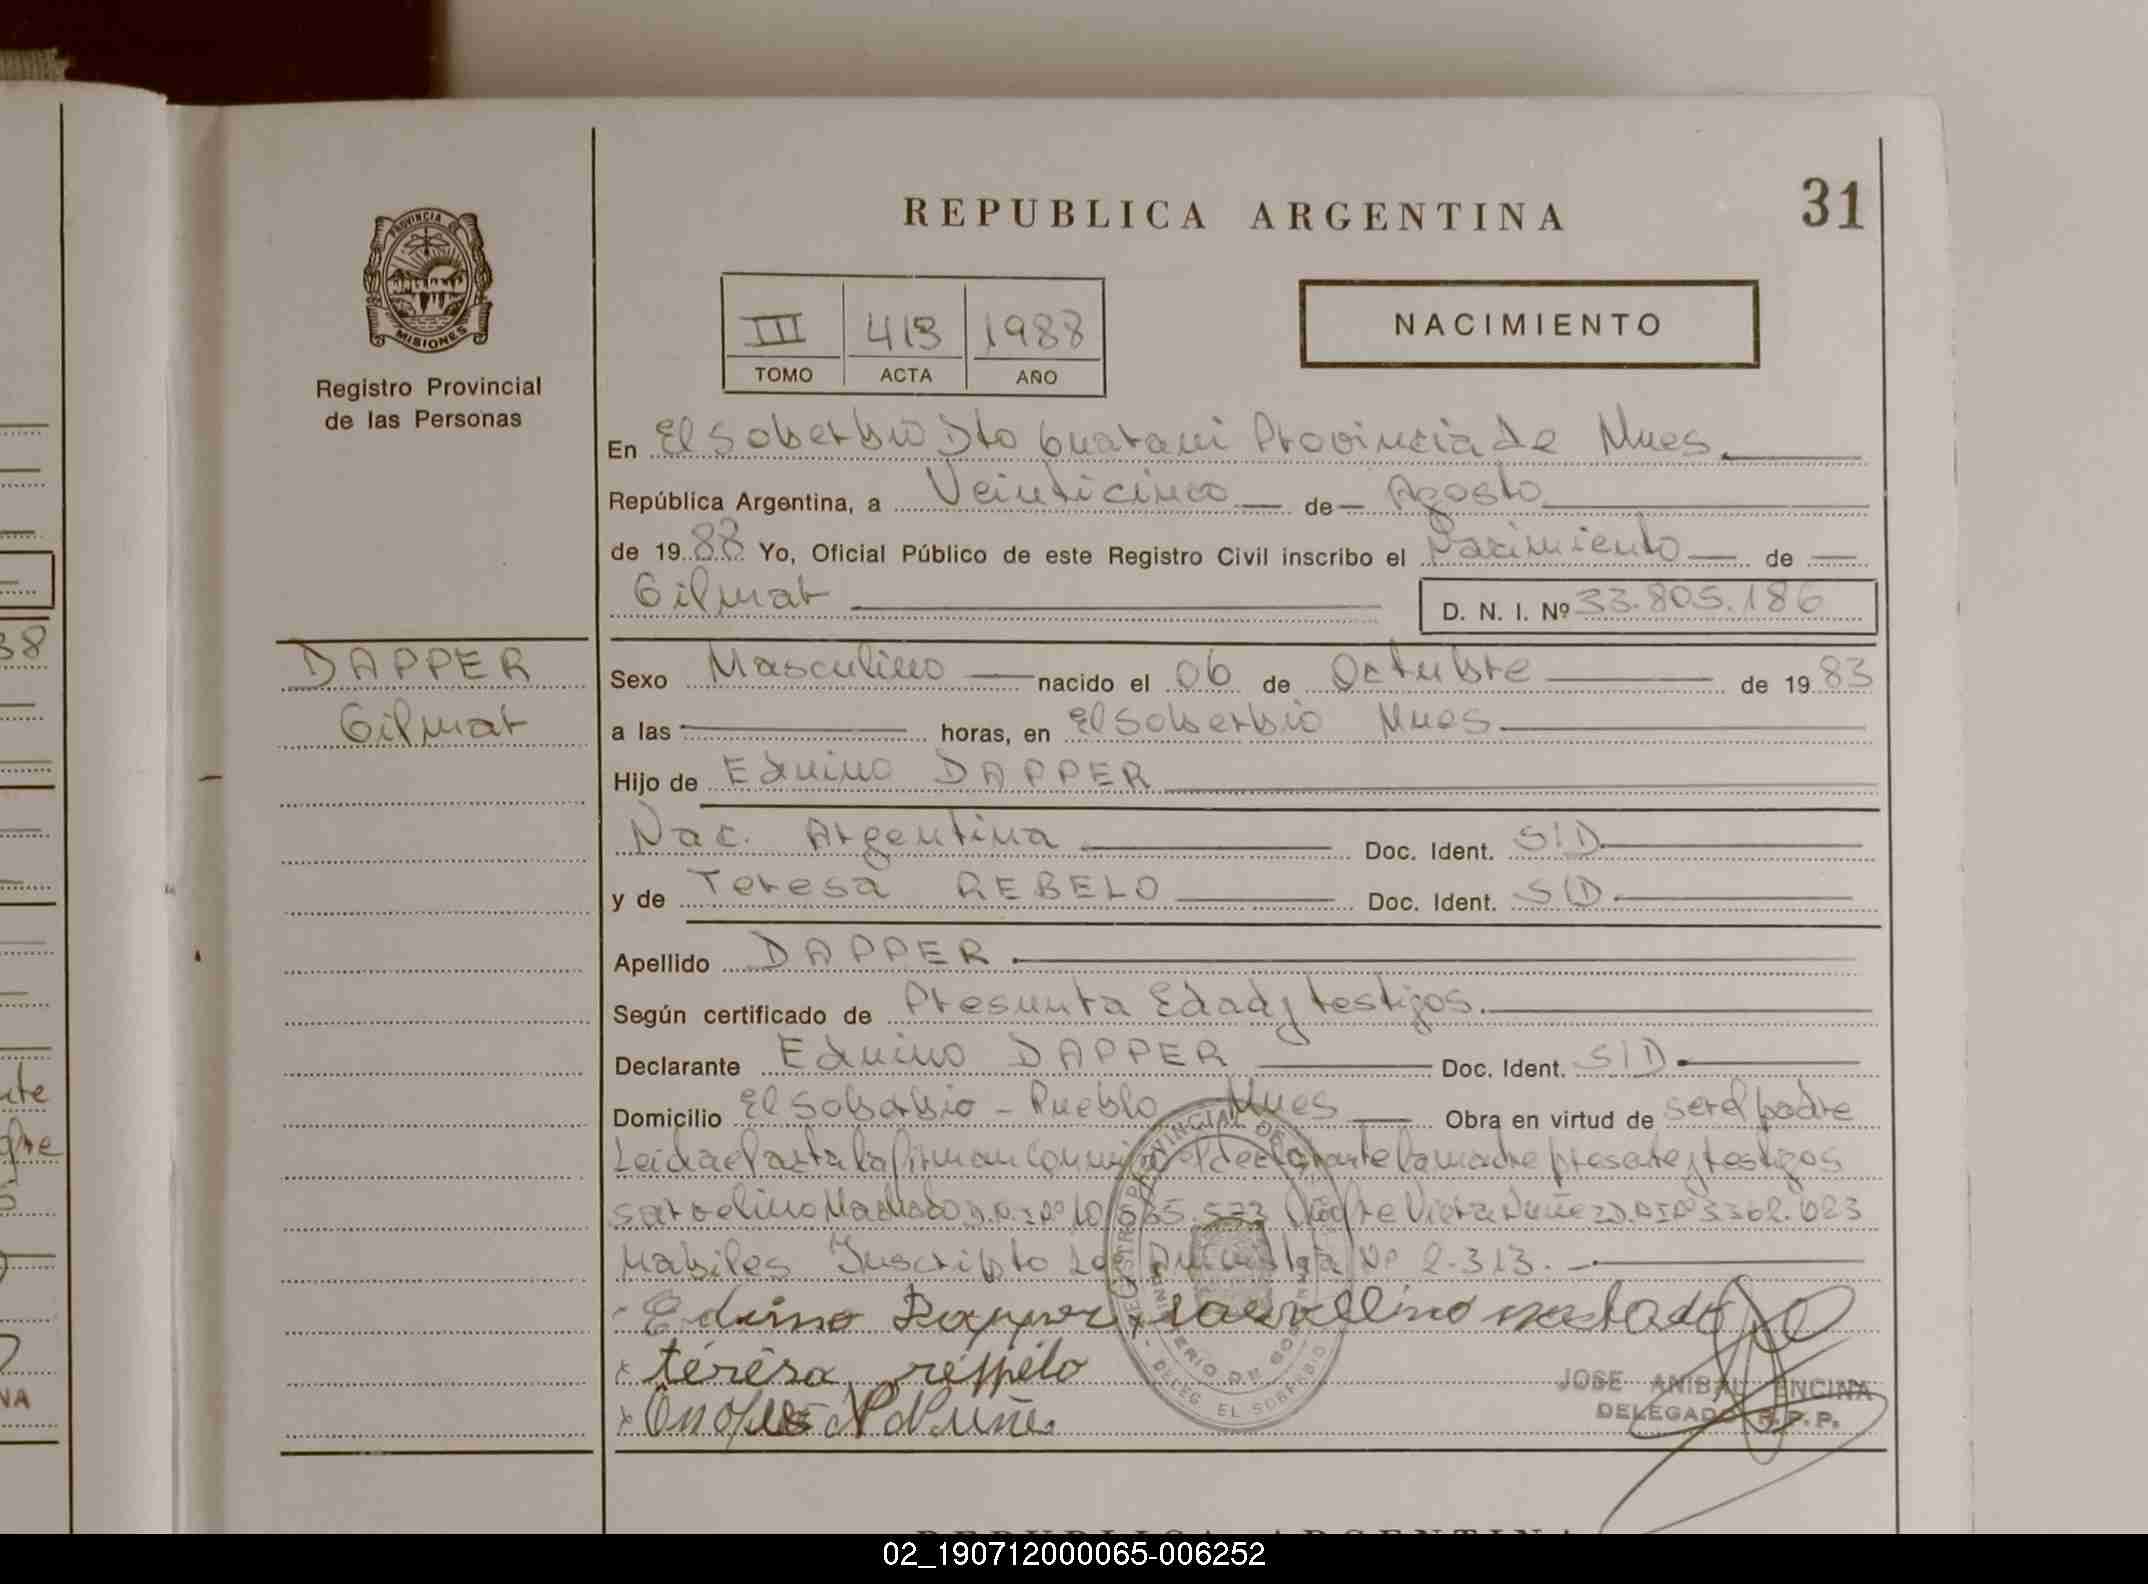 REPUBLICA ARGENTINA
31
PROVINCIA DE
MISIONES
Registro Provincial
de las Personas
III 413 1988
TOMO ACTA AÑO
NACIMIENTO
En El Soberbio Dto Guarani Provincia de Mnes
República Argentina, a Veinticinco de Agosto
de 1988 Yo, Oficial Público de este Registro Civil inscribo el Nacimiento de
Gilmar D. N. I. Nº 33.805.186
DAPPER
Gilmar
Sexo Masculino nacido el 06 de Octubre de 1983
a las horas, en El Soberbio Mnes
Hijo de Eduino DAPPER
Nac. Argentina Doc. Ident. S/D
y de Teresa REBELO Doc. Ident. S/D
Apellido DAPPER
Según certificado de Presunta Edad y testigos.
Declarante Eduino DAPPER Doc. Ident. S/D
Domicilio El Soberbio - Pueblo Mnes Obra en virtud de ser el padre
Leida el acta la firman conmigo el declarante la madre presente y testigos
Machado D.N.I Nº 10. Viera Nuñez D.N.I Nº 3.362.023
Habiles Inscripto Ley Nº 2.313.
Eduino Dapper
x teresa
x
JOSE ANIBAL ENCINA
DELEGADO R.P.P.
REGISTRO PROVINCIAL DE
DELEG. EL SOBERBIO
38
NA
REPUBLICA ARGENTINA
02_190712000065-006252